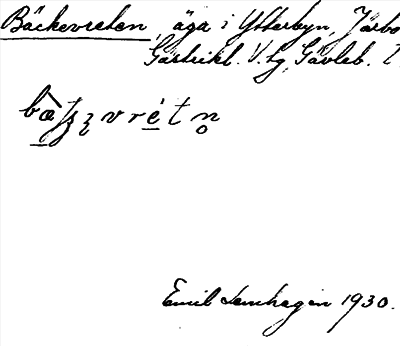 Bäckevreten, äga i Ytterbyn, Järbo
Gästrikl. V. tg, Gävleb. l.
Emil Lemhagen 1930.